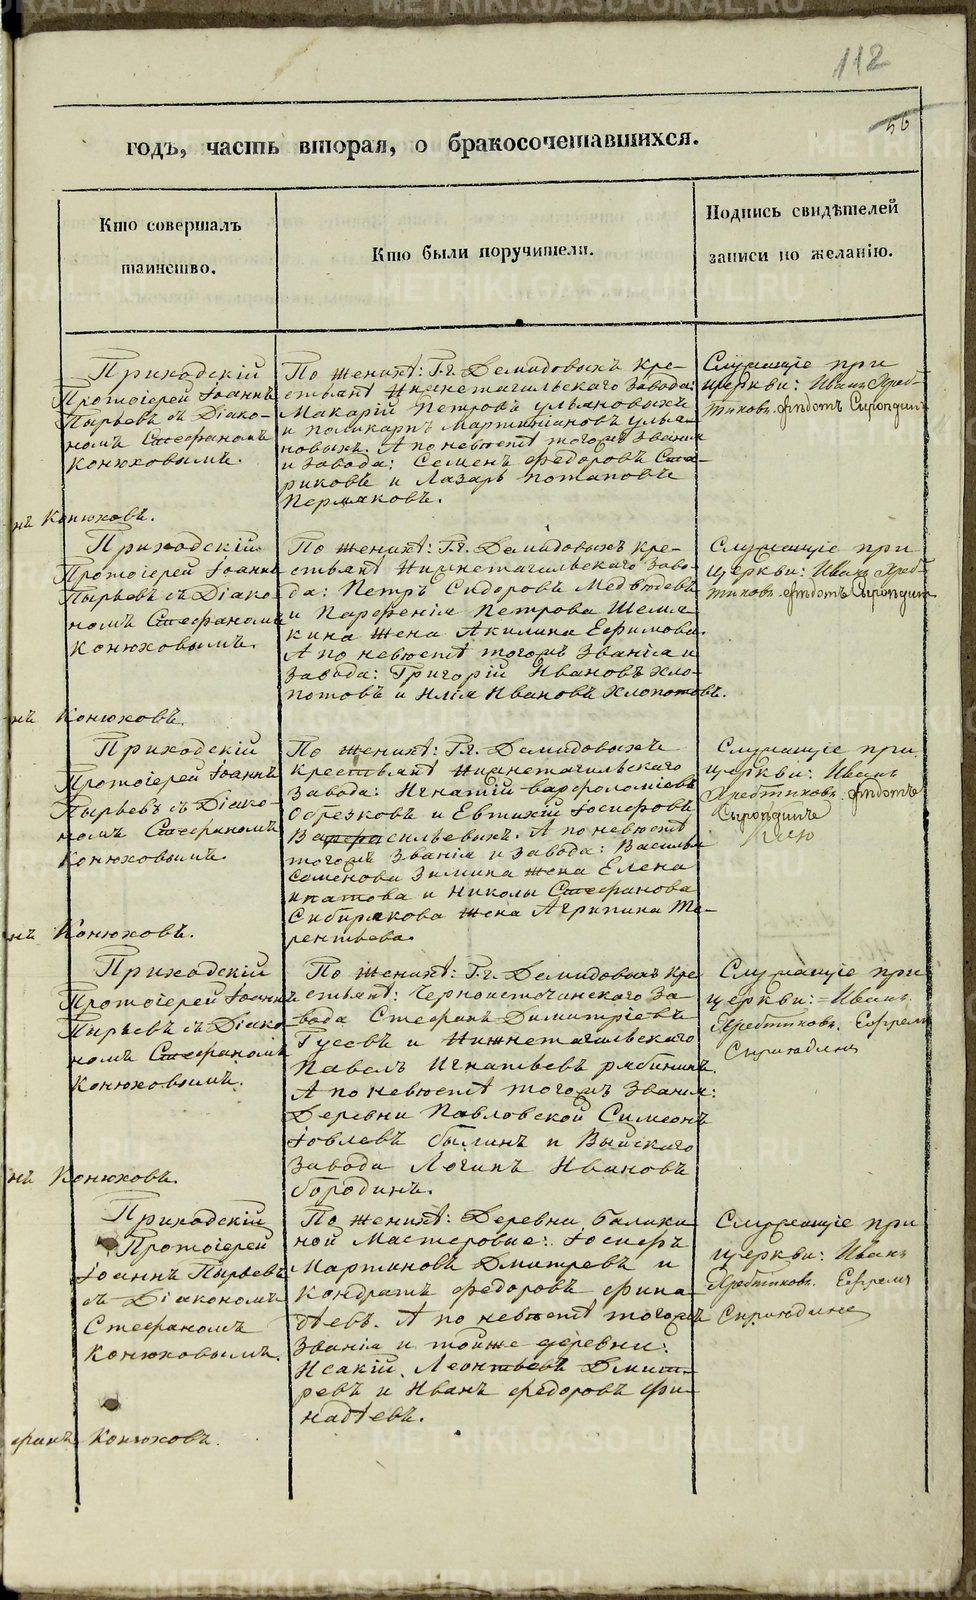 112
56
годъ, часть вторая, о бракосочетавшихся.
Кто совершалъ
таинство.
Кто были поручители.
Подпись свидѣтелей
записи по желанію.
Приходскій
Протоіерей Іоаннъ
Пырьевъ съ Діако-
номъ Стефаномъ
Конюховымъ.
По женихѣ: Г.г. Демидовыхъ кре-
стьянѣ Нижнетагильскаго Завода:
Макарій Петровъ Ульяновыхъ
и Поликарпъ Мартиніановъ Улья-
новыхъ. А по невѣстѣ тогожъ Званія
и Завода: Семенъ Федоровъ Ста-
риковъ и Лазарь Потаповъ
Пермяковъ.
Служащіе при
церкви: Иванъ
нъ Конюховъ.
Приходскій
Протоіерей Іоаннъ
Пырьевъ съ Діако-
номъ Стефаномъ
Конюховымъ.
По женихѣ: Г.г. Демидовыхъ кре-
стьянѣ Нижнетагильскаго Заво-
да: Петръ Сидоровъ Медвѣдевъ
и Парфенія Петрова Шемя-
кина жена Акилина Ефимова.
А по невѣстѣ тогожъ Званія и
Завода: Григорій Ивановъ Хло-
потовъ и Илія Ивановъ Хлопотовъ.
Служащіе при
церкви: Иванъ
нъ Конюховъ.
Приходскій
Протоіерей Іоаннъ
Пырьевъ съ Діако-
номъ Стефаномъ
Конюховымъ.
По женихѣ: Г.г. Демидовыхъ
крестьянѣ Нижнетагильскаго
Завода: Игнатій Варфоломіевъ
Обрезковъ и Евтихій Іосифовъ
Васильевыхъ. А по невѣстѣ
тогожъ Званія и Завода: Василья
Семенова Зимина жена Елена
Ипатова и Николы Стефанова
Сибирякова жена Агрипина Те-
рентьева.
Служащіе при
церкви: Иванъ
нъ Конюховъ.
Приходскій
Протоіерей Іоаннъ
Пырьевъ съ Діако-
номъ Стефаномъ
Конюховымъ.
По женихѣ: Г.г. Демидовыхъ кре-
стьянѣ: Черноисточинскаго За-
вода Стефанъ Димитріевъ
Гусевъ и Нижнетагильскаго
Павелъ Игнатьевъ Рябининъ.
А по невѣстѣ тогожъ Званія:
Деревни Павловской Симеонъ
Іовлевъ Былинъ и Выйскаго
Завода Логинъ Ивановъ
Бородинъ.
Служащіе при
церкви: Иванъ
Ефремъ
нъ Конюховъ.
Приходскій
Протоіерей
Іоаннъ Пырьевъ
съ Діакономъ
Стефаномъ
Конюховымъ.
По женихѣ: Деревни Балаки-
ной Мастеровые: Іосифъ
Мартиновъ Дмитревъ и
Кондратъ Федоровъ Фина-
дѣевъ. А по невѣстѣ тогожъ
Званія и тойже деревни:
Исакій Леонтьевъ Дмит-
ревъ и Иванъ Федоровъ Фи-
надѣевъ.
Служащіе при
церкви: Иванъ
Ефремъ
фанъ Конюховъ.
METRIKI.GASO-URAL.RU